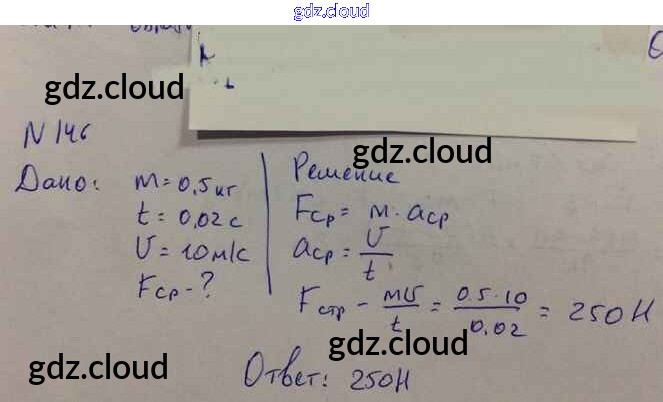 gdz.cloud
gdz.cloud
N 146
gdz.cloud
Дано: m = 0,5 кг
t = 0,02 с
U = 10 м/с
Fср - ?
Решение
Fср = m · aср
aср = U / t
Fстр - mU / t = 0.5 · 10 / 0.02 = 250 Н
gdz.cloud
gdz.cloud
Ответ: 250 Н